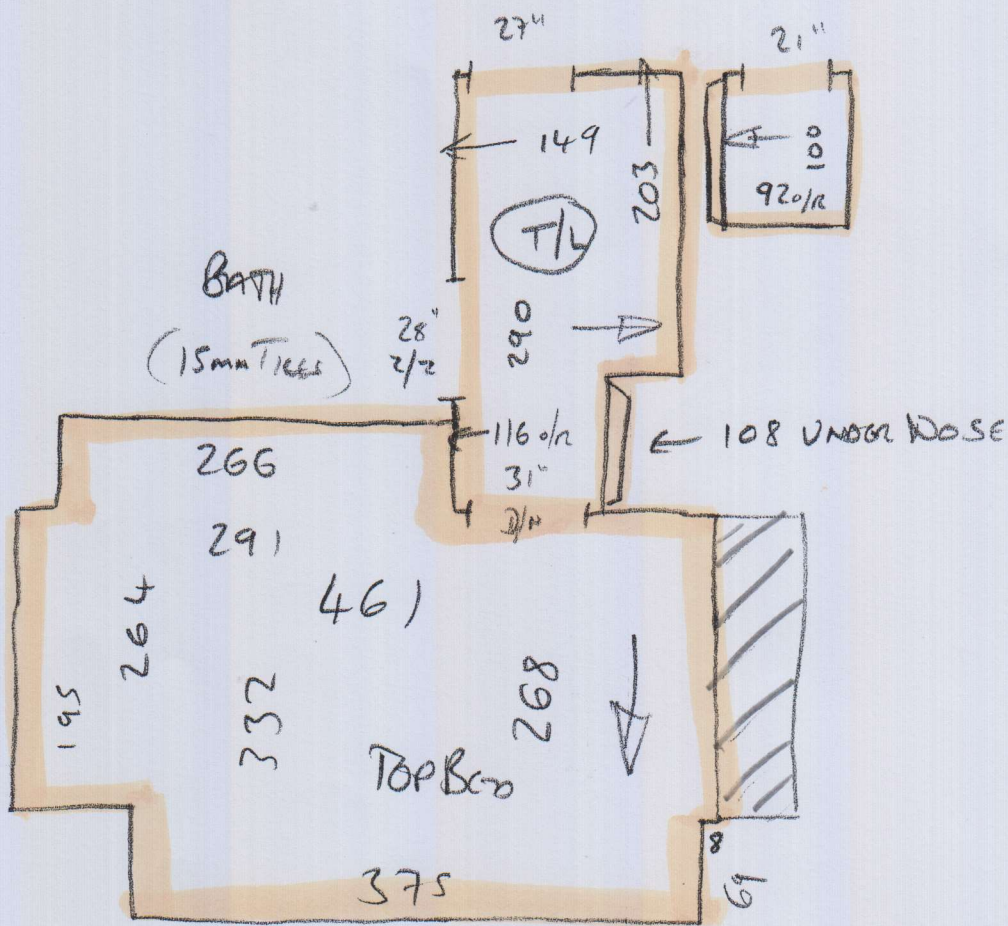 27"
21"
149
203
100
92 o/R
T/L
BATH
(15mm TILES)
28"
2/2
290
116 o/R
31"
D/N
108 UNDER NOSE
266
291
461
264
195
332
268
TOP BED
375
8
69